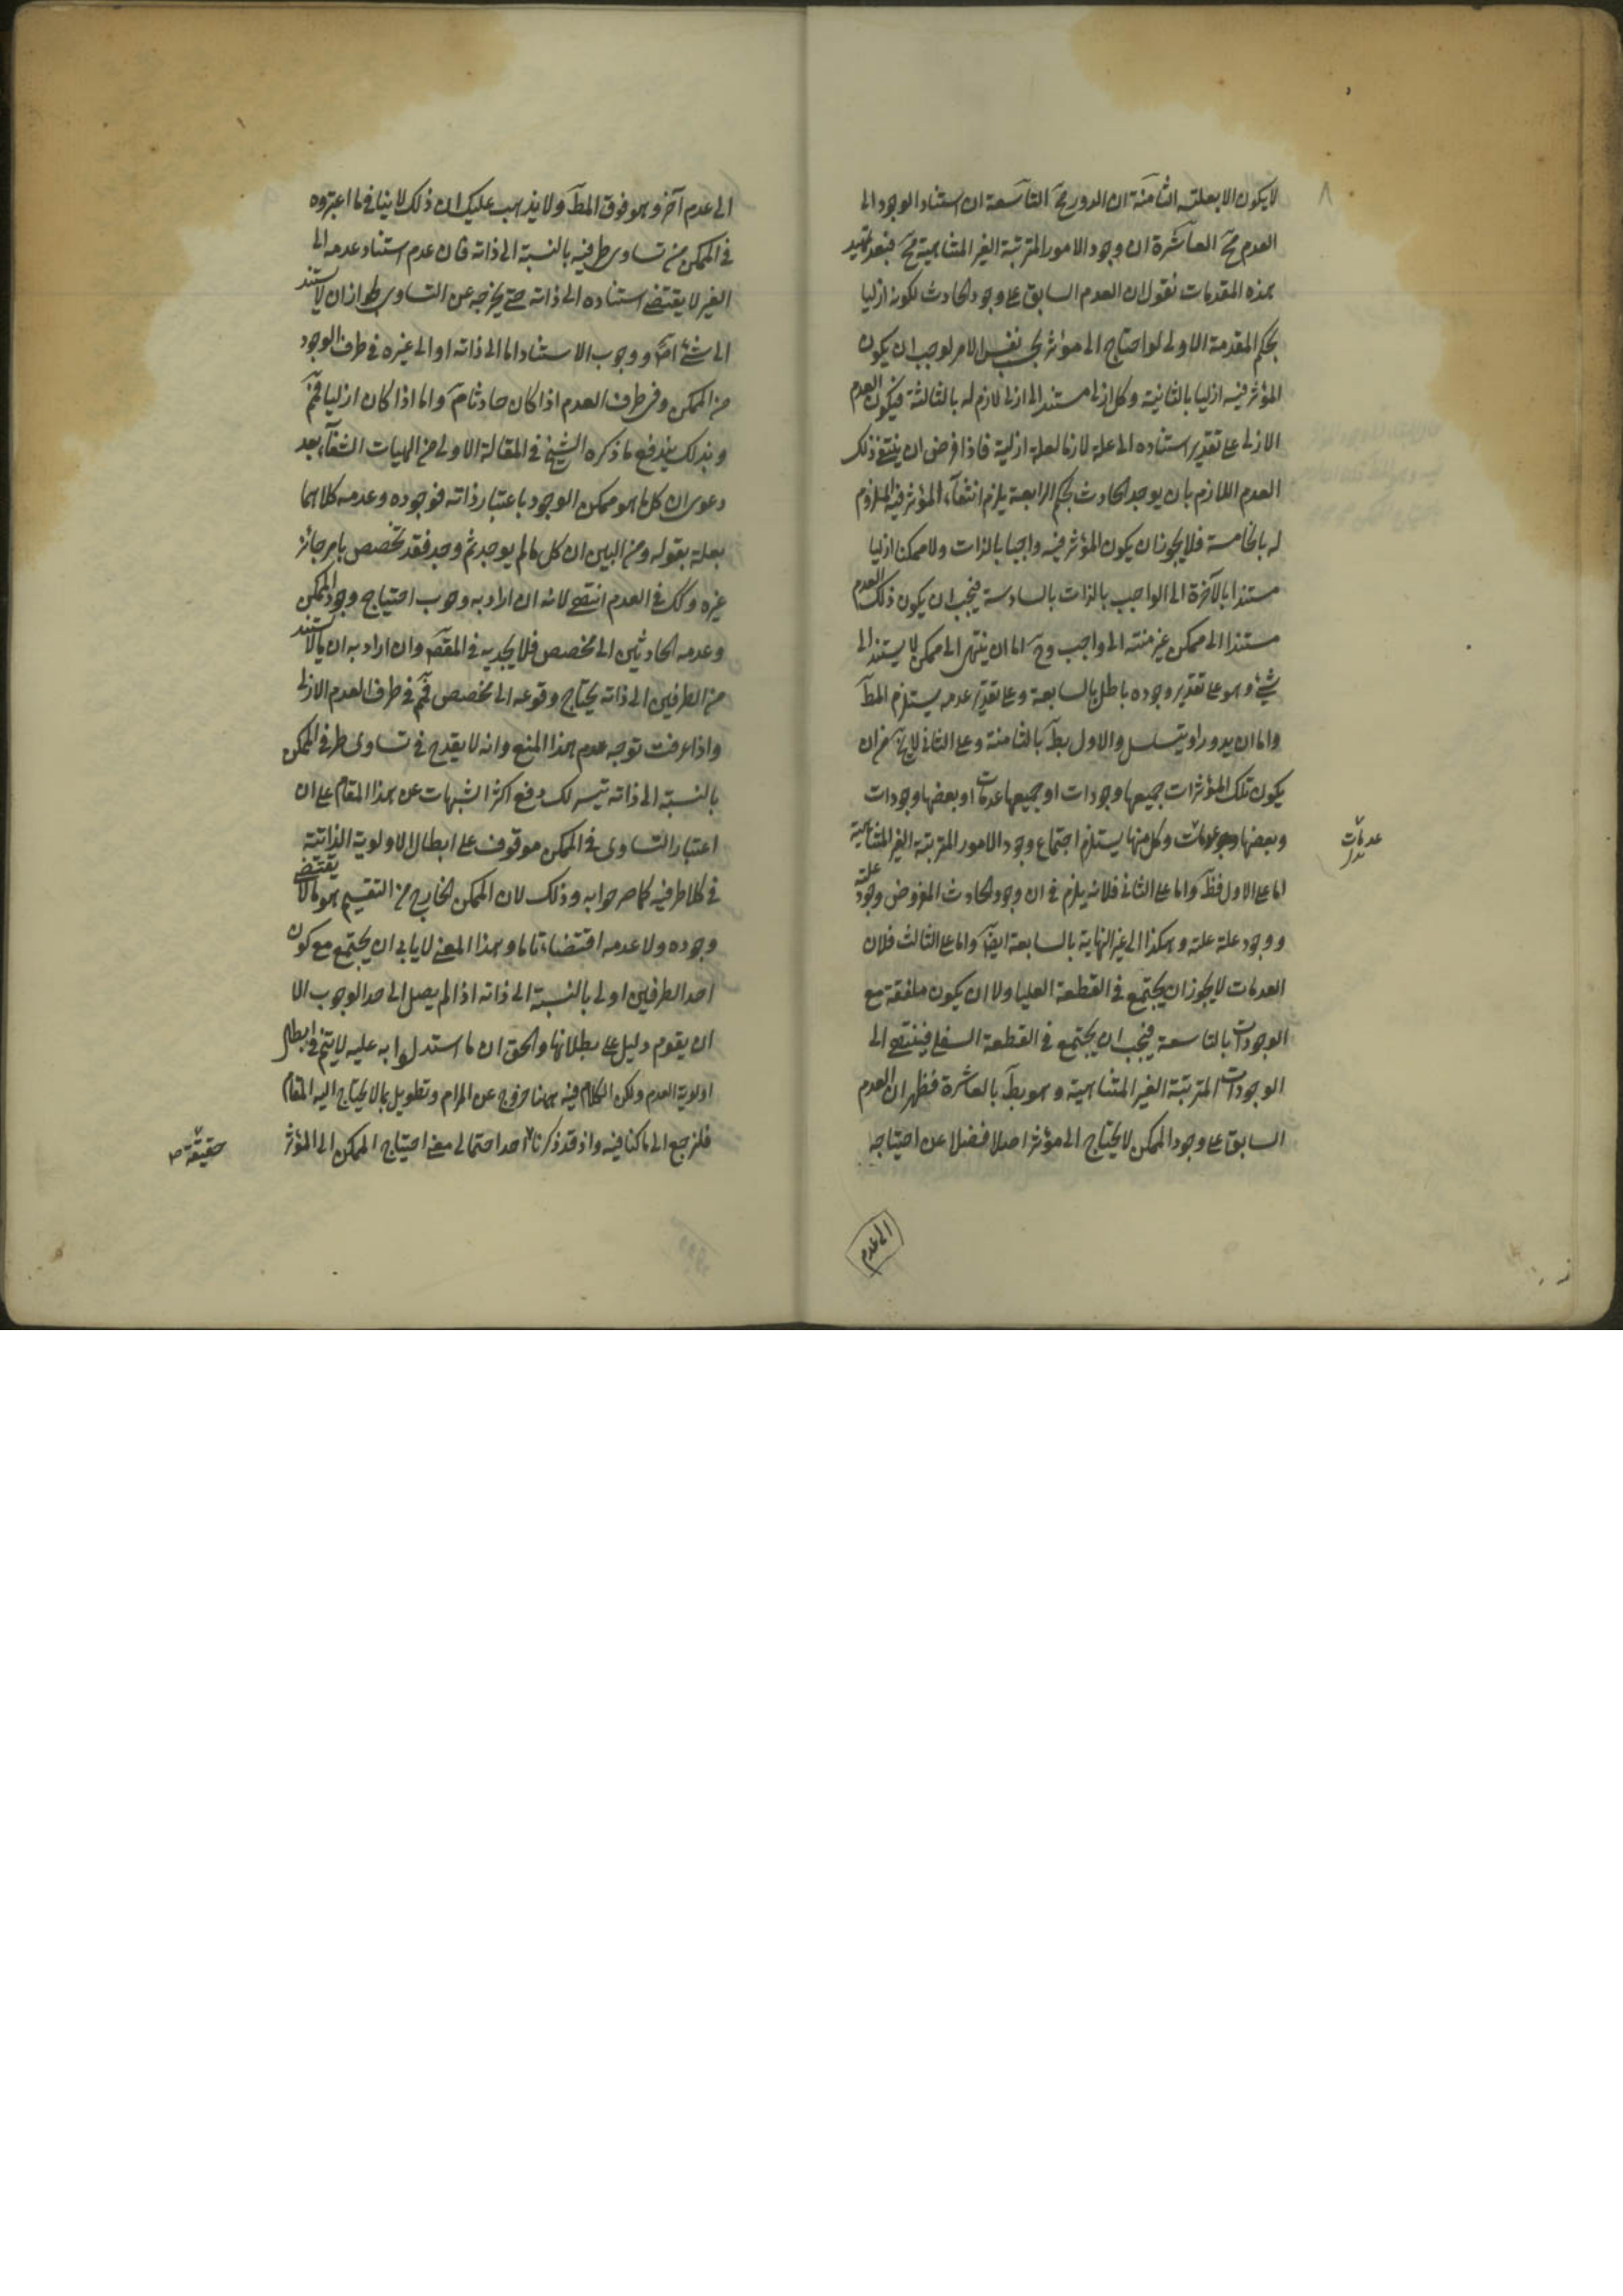 ٨
لا يكون الا بعلته الثامنة ان الدور مح التاسعة ان استناد الوجود الى
العدم مح العاشرة ان وجود الامور المترتبة الغير المتناهية مح فبعد تمهيد
هذه المقدمات نقول ان العدم السابق على وجود الحادث لكونه ازليا
بحكم المقدمة الاولى لو احتاج الى مؤثر بحسب نفس الامر لوجب ان يكون
المؤثر فيه ازليا بالثانية وكل ازلى مستند الى ازلى لازم له بالثالثة فيكون العدم
الازلى على تقدير استناده الى علة لازما لعلة ازلية فاذا فرض ان ينتفى ذلك
العدم اللازم بان يوجد الحادث بحكم الرابعة يلزم انتفاء المؤثر فيه الملزوم
له بالخامسة فلا يجوز ان يكون المؤثر فيه واجبا بالذات ولا ممكنا ازليا
مستندا بالآخرة الى الواجب بالذات بالسادسة فيجب ان يكون ذلك العدم
مستندا الى ممكن غير منته الى واجب وح اما ان ينتهى الى ممكن لا يستند الى
شئ وهو على تقدير وجوده باطل بالسابعة وعلى تقدير عدمه يستلزم المط
واما ان يدور او يتسلسل والاول بط بالثامنة وعلى الثانى لا يخ من ان
يكون تلك المؤثرات جميعها وجودات او جميعها عدمات او بعضها وجودات
وبعضها وكل منها يستلزم اجتماع وجود الامور المترتبة الغير المتناهية
عدمات
بدل
اما على الاول فظ واما على الثانى فلانه يلزم فى ان وجود الحادث المفروض وجود علته
ووجود علة علته وهكذا الى غير النهاية بالسابعة ايض واما على الثالث فلان
العدمات لا يجوز ان يجتمع فى القطعة العليا ولا ان يكون ملفقة مع
الوجودات بالتاسعة فيجب ان يجتمع فى القطعة السفلى فينتهى الى
الوجودات المترتبة الغير المتناهية وهو بط بالعاشرة فظهر ان العدم
السابق على وجود الممكن لا يحتاج الى مؤثر اصلا فضلا عن احتياجه
الى عدم
الى عدم آخر وهو فوق المط ولا يذهب عليك ان ذلك لا ينافى ما اعتبروه
فى الممكن من تساوى طرفيه بالنسبة الى ذاته فان عدم استناد عدمه الى
الغير لا يقتضى استناده الى ذاته حتى يخرجه عن التساوى لجواز ان لا يستند
الى شئ اص ووجوب الاستناد اما الى ذاته او الى غيره فى طرف الوجود
من الممكن وفى طرف العدم اذا كان حادثا مم واما اذا كان ازليا فمم
وبذلك يندفع ما ذكره الشيخ فى المقالة الاولى من الهيات الشفاء بعد
دعوى ان كل ما هو ممكن الوجود باعتبار ذاته فوجوده وعدمه كلاهما
بعلة بقوله ومن البين ان كل ما لم يوجد ثم وجد فقد تخصص بامر جائز
غيره وكك فى العدم انتهى لانه ان اراد به وجوب احتياج وجود الممكن
وعدمه الحادثين الى مخصص فلا يجديه فى المقص وان اراد به ان ما لا يستند
من الطرفين الى ذاته يحتاج وقوعه الى مخصص فمم فى طرف العدم الازلى
واذا عرفت توجه عدم هذا المنع وانه لا يقدح فى تساوى طرفى الممكن
بالنسبة الى ذاته تيسر لك دفع اكثر الشبهات عن هذا المقام على ان
اعتبار التساوى فى الممكن موقوف على ابطال الاولوية الذاتية
فى كلا طرفيه كما صرحوا به وذلك لان الممكن الخارج من التقسيم هو ما لا يقتضى
وجوده ولا عدمه اقتضاء تاما وبهذا المعنى لا يابى ان يجتمع مع كون
احد الطرفين اولى بالنسبة الى ذاته اذا لم يصل الى حد الوجوب الا
ان يقوم دليل على بطلانها والحق ان ما استدلوا به عليه لا يتم فى ابطال
اولوية العدم ولكن الكلام فيه ههنا خروج عن المرام وتطويل بما لا يحتاج اليه المقام
فلنرجع الى ما كنا فيه واذ قد ذكرنا احد احتمالى معنى احتياج الممكن الى المؤثر
حقيقة ص